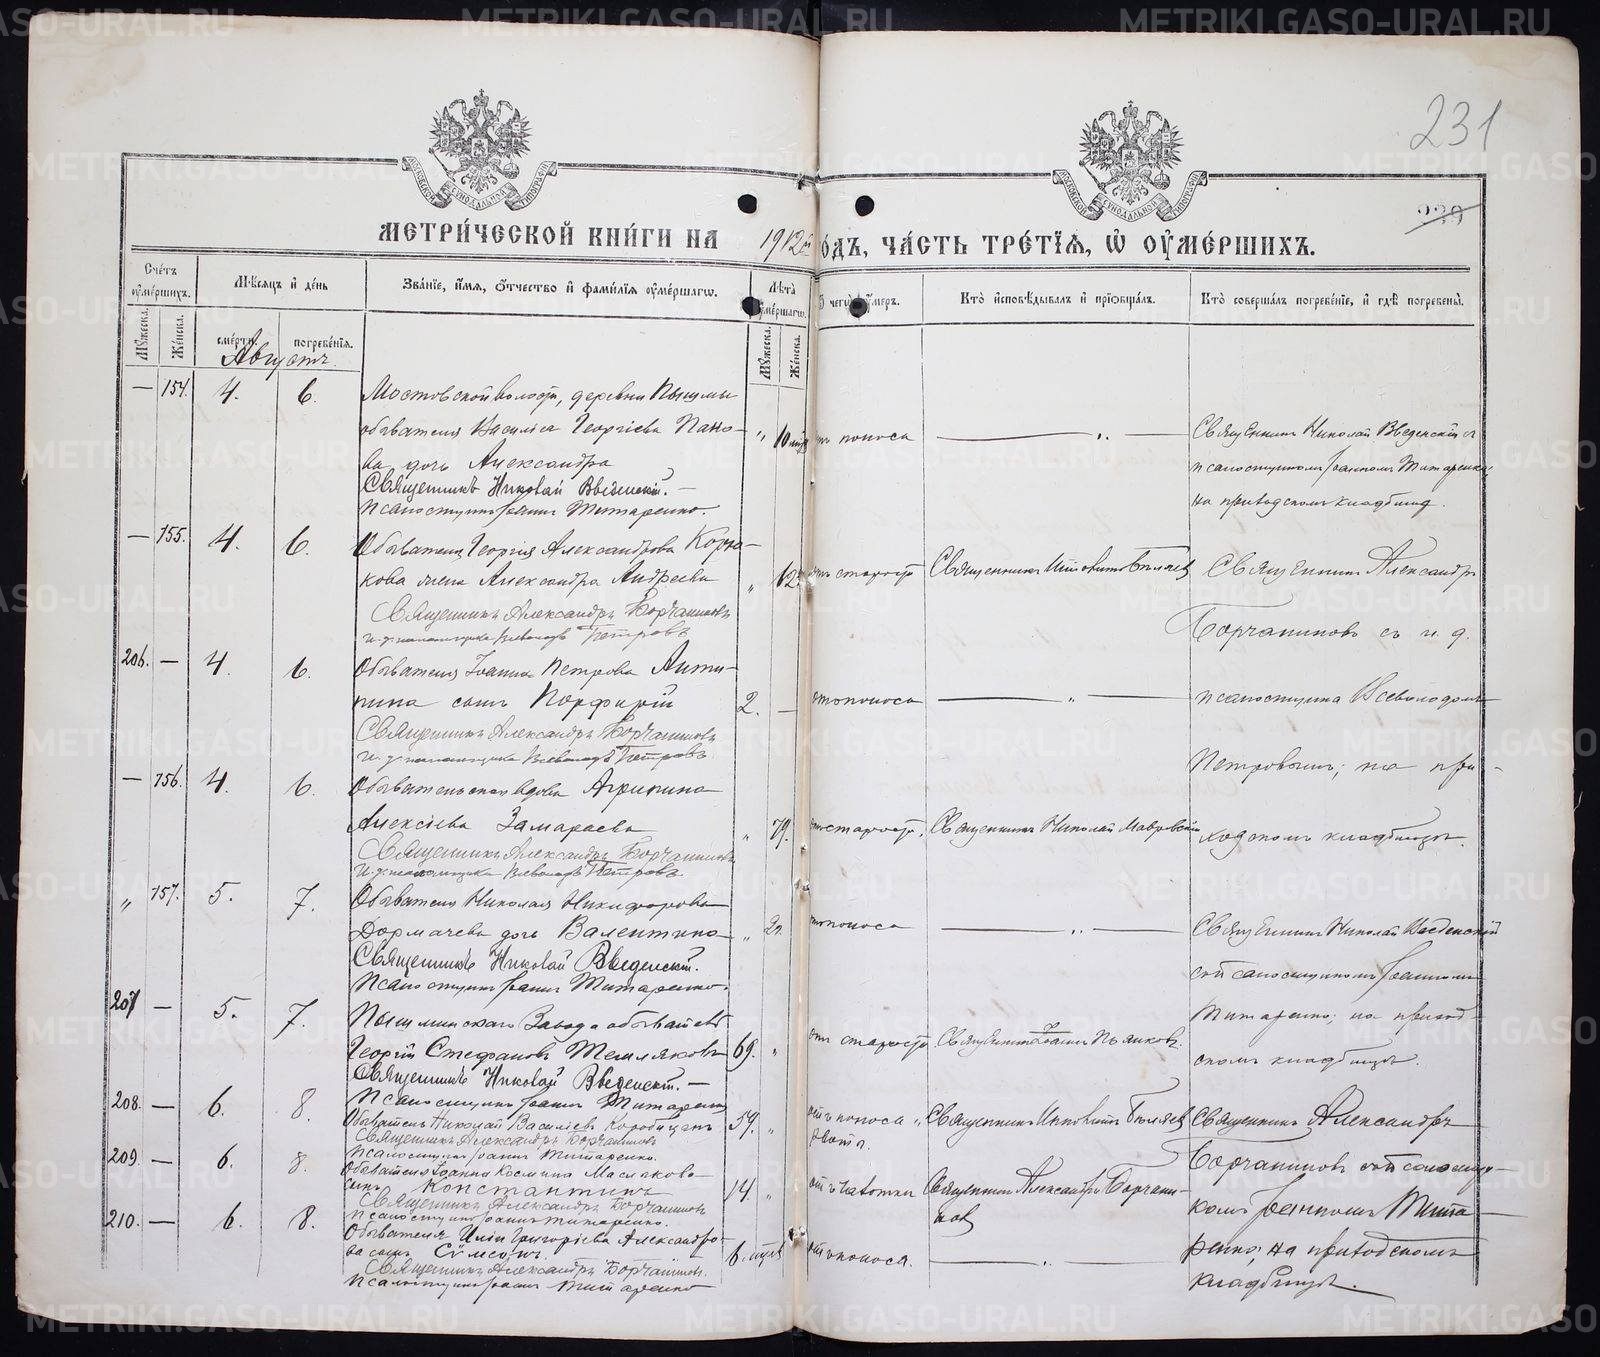 231
239
МЕТРИЧЕСКОЙ КНИГИ НА 1912й ГОДЪ, ЧАСТЬ ТРЕТІЯ, Ѡ ОУМЕРШИХЪ.
Счетъ оумершихъ.
Мѣсяцъ и день
Званіе, имя, отчество и фамилія оумершагѡ.
Лѣта оумершагѡ.
Ѿ чегѡ оумеръ.
Кто исповѣдывалъ и пріобщалъ.
Кто совершалъ погребеніе, и гдѣ погребены.
Мужеска.
Женска.
смерти.
погребенія.
Мужеска.
Женска.
Августъ.
— 154. 4. 6.
Мостовской волости, деревни Пышмы
обывателя Василія Георгіева Пано-
ва дочь Александра
„ 10 мѣс
отъ поноса
— „ —
Священникъ Николай Введенскій.—
Псаломщикъ Іоаннъ Титаренко.
Священникъ Николай Введенскій съ
псаломщикомъ Іоанномъ Титаренко,
на приходскомъ кладбищѣ.
— 155. 4. 6.
Обывателя Георгія Александрова
кова жена Александра Андреева
„ 62
отъ старости
Священникъ Иннокентій Бѣляевъ
Священникъ Александръ Борчаниновъ
и. д. псаломщика Всеволодъ Петровъ
Священникъ Александръ
Борчаниновъ съ и. д.
псаломщика Всеволодомъ
Петровымъ; на при-
ходскомъ кладбищѣ.
206. — 4. 6.
Обывателя Іоанна Петрова Анти-
пина сынъ Порфирій
2. —
отъ поноса
— „ —
Священникъ Александръ Борчаниновъ
и. д. псаломщика Всеволодъ Петровъ.
— 156. 4. 6.
Обывательская вдова Агрипина
Алексіева Замараева
„ 79.
отъ старости.
Священникъ Николай Мавровскій
Священникъ Александръ Борчаниновъ
и. д. псаломщика Всеволодъ Петровъ.
„ 157. 5. 7.
Обывателя Николая Никифорова
Дормачева дочь Валентина
„ 2 л.
отъ поноса
— „ —
Священникъ Николай Введенскій.
Псаломщикъ Іоаннъ Титаренко.
Священникъ Николай Введенскій
съ псаломщикомъ Іоанномъ
Титаренко; на приход-
скомъ кладбищѣ.
207 — 5. 7.
Пышминскаго Завода обыватель
Георгій Стефановъ Темляковъ
69. „
отъ старости.
Священникъ Іоаннъ Пьянковъ.
Священникъ Николай Введенскій.—
Псаломщикъ Іоаннъ Титаренко
208. — 6. 8.
Обыватель Николай Василіевъ Коробицынъ
59. „
отъ поноса „
рвоты.
Священникъ Иннокентій Бѣляевъ
Священникъ Александръ Борчаниновъ
Псаломщикъ Іоаннъ Титаренко.
Священникъ Александръ
Борчаниновъ съ псаломщи-
комъ Іоанномъ Тита-
ренко; на приходскомъ
кладбищѣ.
209. — 6. 8.
Обывателя Іоанна Космина Маслакова
сынъ Константинъ
14. „
отъ чахотки
Священникъ Александръ Борчани-
новъ
Священникъ Александръ Борчаниновъ
Псаломщикъ Іоаннъ Титаренко.
210. — 6. 8.
Обывателя Иліи Григоріева Александро-
ва сынъ Сѵмеонъ.
6. мѣс
отъ поноса.
— „ —
Священникъ Александръ Борчаниновъ.
Псаломщикъ Іоаннъ Титаренко
METRIKI.GASO-URAL.RU